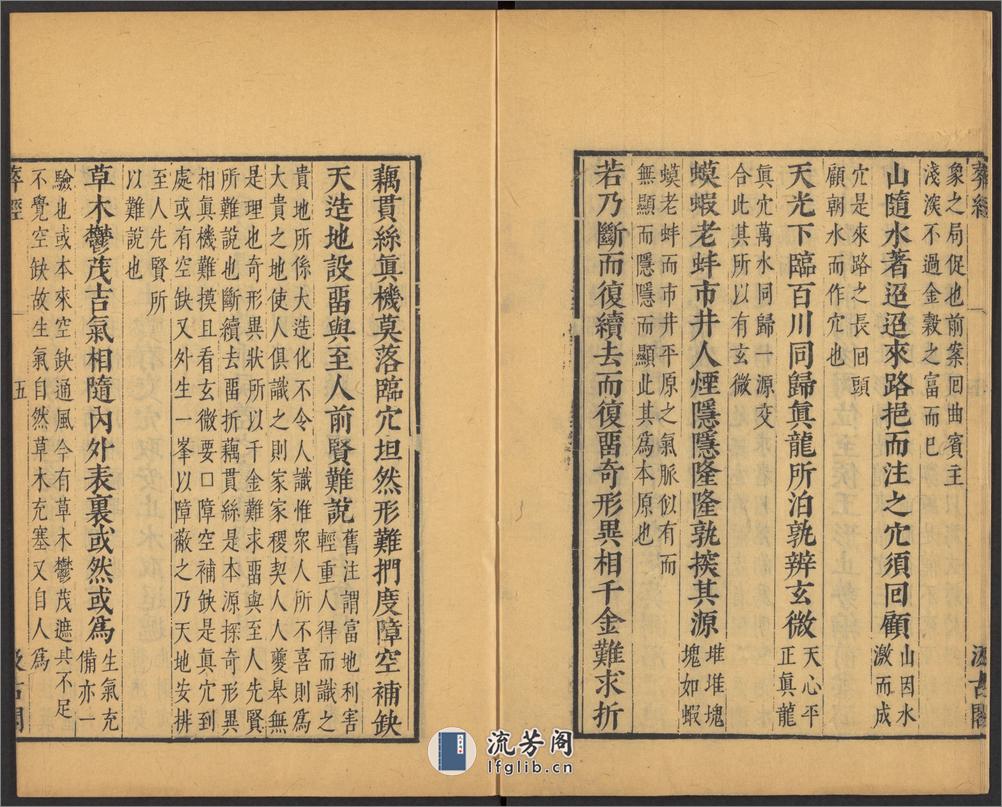 葬經
汲古閣
象之局促也前案囘曲賓主
淺深不過金穀之富而已
山隨水著迢迢來路挹而注之穴須回顧
山因水
激而成
穴是來路之長回頭
顧朝水而作穴也
天光下臨百川同歸眞龍所泊孰辨玄微
天心平
正眞龍
眞穴萬水同歸一源交
合此其所以有玄微
蟆蝦老蚌市井人煙隱隱隆隆孰探其源
堆堆塊
塊如蝦
蟆老蚌而市井平原之氣脈似有而
無顯而隱隱而顯此其爲本原也
若乃斷而復續去而復畱奇形異相千金難求折
藕貫絲眞機莫落臨穴坦然形難捫度障空補缺
天造地設畱與至人前賢難說
舊注謂富地利害
輕重人得而識之
貴地所係大造化不令人識惟衆人所不喜則爲
大貴之地使人俱識之則家家稷契人人夔皋無
是理也奇形異狀所以千金難求畱與至人先賢
所難說也斷續去畱折藕貫絲是本源探奇形異
相眞機難摸且看玄微要□障空補缺是眞穴到
處或有空缺又外生一峯以障蔽之乃天地安排
至人先賢所
以難說也
草木鬱茂吉氣相隨內外表裏或然或爲
生氣充
備亦一
驗也或本來空缺通風今有草木鬱茂遮其不足
不覺空缺故生氣自然草木充塞又自人爲
葬經
五
汲古閣
流芳阁
lfglib.cn